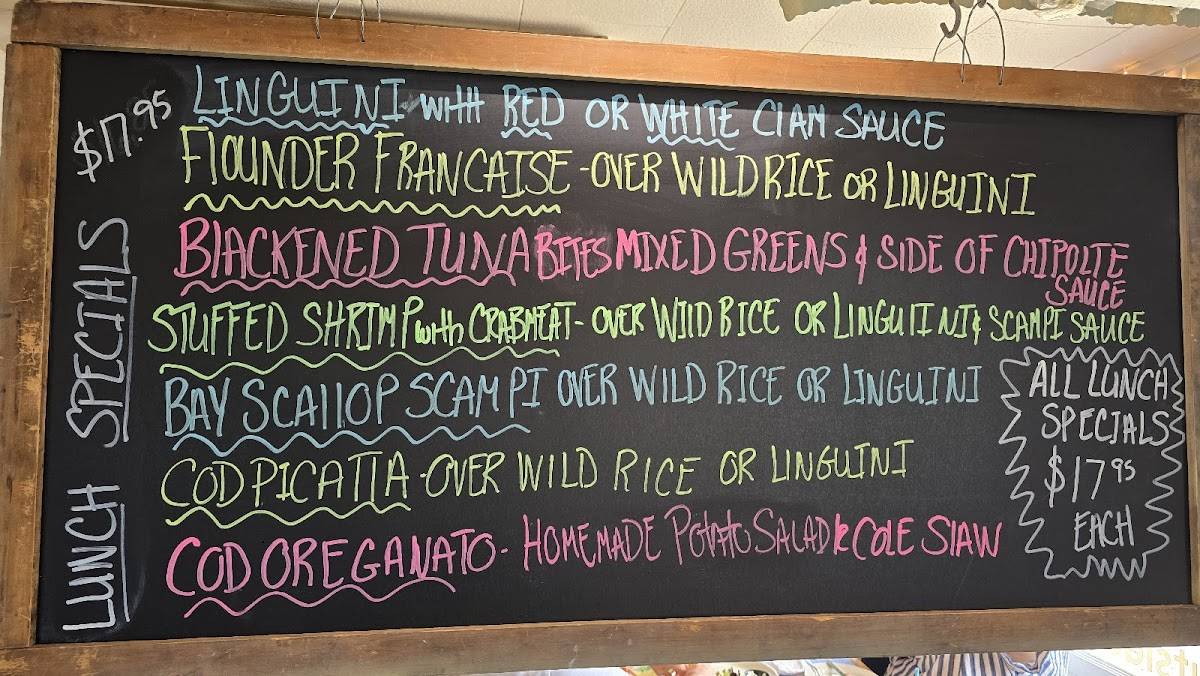 $17.95
LUNCH SPECIALS
LINGUINI with RED OR WHITE CLAM SAUCE
FLOUNDER FRANCAISE - OVER WILD RICE OR LINGUINI
BLACKENED TUNA BITES MIXED GREENS & SIDE OF CHIPOLTE
SAUCE
STUFFED SHRIMP with CRABMEAT - OVER WILD RICE OR LINGUINI & SCAMPI SAUCE
BAY SCALLOP SCAMPI OVER WILD RICE OR LINGUINI
COD PICATTA - OVER WILD RICE OR LINGUINI
COD OREGANATO - HOMEMADE POTATO SALAD & COLE SLAW
ALL LUNCH
SPECIALS
$17.95
EACH